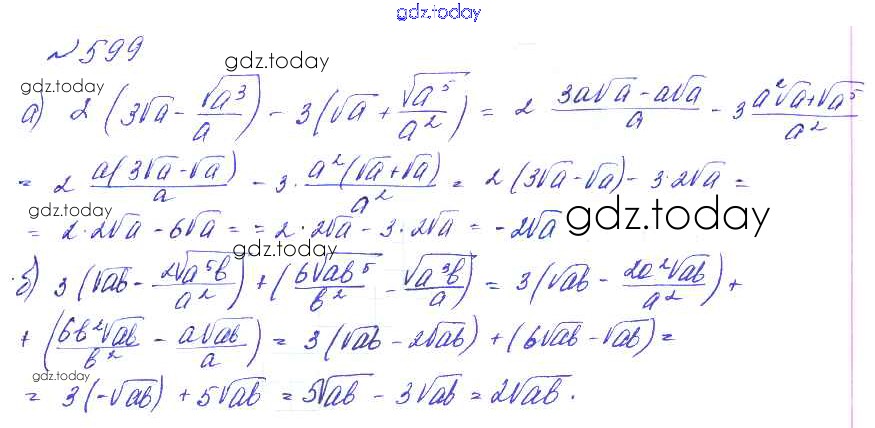 gdz.today
№599
gdz.today
gdz.today
а) 2 (3√a - √a³/a) - 3(√a + √a⁵/a²) = 2 (3a√a - a√a)/a - 3 (a²√a + √a⁵)/a²
= 2 a(3√a - √a)/a - 3 · a²(√a + √a)/a² = 2(3√a - √a) - 3·2√a =
gdz.today
= 2·2√a - 6√a = = 2·2√a - 3·2√a = -2√a
gdz.today
gdz.today
б) 3 (√ab - 2√a⁵b/a²) + (6√ab⁵/b² - √a³b/a) = 3(√ab - 2a²√ab/a²) +
+ (6b²√ab/b² - a√ab/a) = 3(√ab - 2√ab) + (6√ab - √ab) =
gdz.today
= 3(-√ab) + 5√ab = 5√ab - 3√ab = 2√ab.